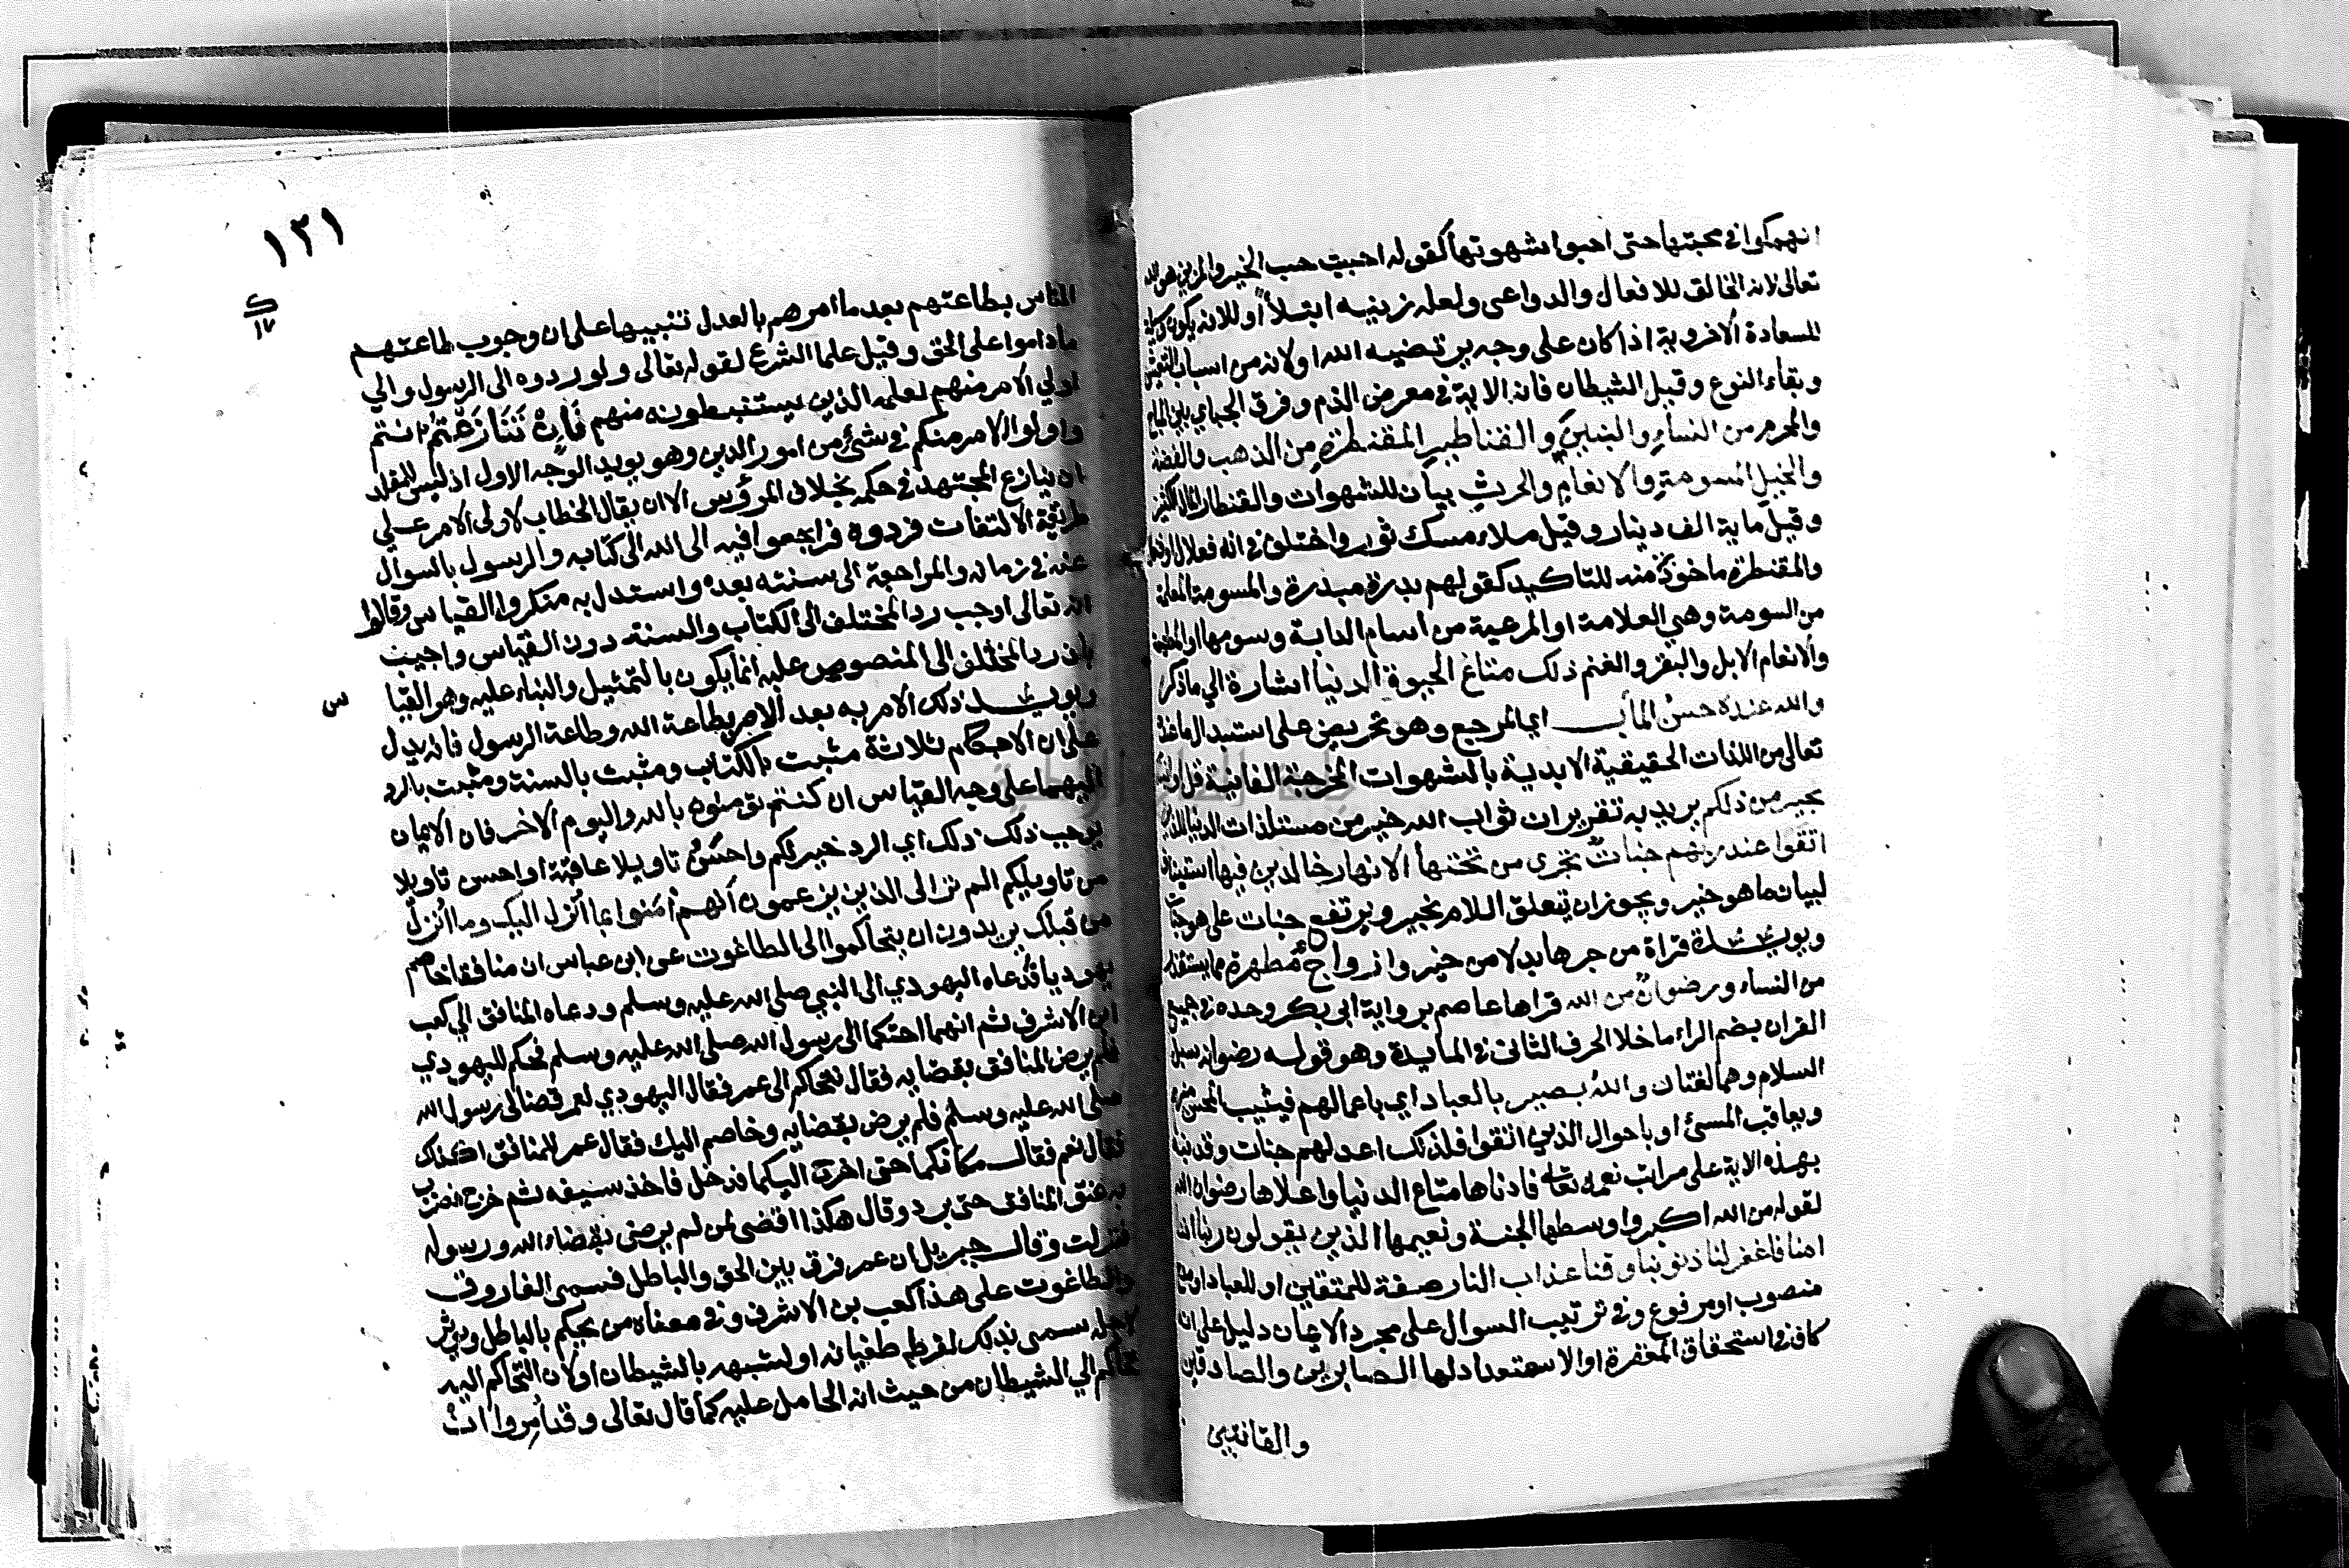 انهمكوا في محبتها حتى احبوا شهوتها كقوله احببت حب الخير والمزين هو الله
تعالى لانه الخالق للافعال والدواعي ولعله زينه ابتلاً او للانه يكون وسيلة
للسعادة الاخروية اذا كان على وجه يرتضيه الله او لانه من اسباب التعيش
وبقاء النوع وقيل الشيطان فان الاية في معرض الذم وفرق الجباي بين المباح
والمحرم من النساءِ والبنين والقناطير المقنطرةِ من الذهب والفضة
والخيل المسومةِ والانعامِ والحرثِ بيان للشهوات والقنطار المال الكثير
وقيل ماية الف دينار وقيل ملاء مسك ثور واختلف في انه فعلال او فنعال
والمقنطرة ماخوذ منه للتاكيد كقولهم بدرة مبدرة والمسومة المعلمة
من السومة وهي العلامة او المرعية من اسام الدابة وسومها او المطهمة
والانعام الابل والبقر والغنم ذلك متاع الحيوة الدنيا اشارة الي ماذكر
والله عنده حسن المأب اي المرجع وهو تحريض على استبدال ما عنده
تعالى من اللذات الحقيقية الابدية بالشهوات المخدجة الفانية قل اونبئكم
بخير من ذلكم يريد به تقرير ان ثواب الله خير من مستلذات الدنيا للذين
اتقوا عند ربهم جنات تجرى من تحتها الانهار خالدين فيها استيناف
لبيان ما هو خير ويجوز ان يتعلق اللام بخير ويرتفع جنات على هو جنات
ويويده قراة من جرها بدلا من خير وازواج مطهرة مما يستقذر
من النساء ورضوان من الله قراها عاصم برواية ابي بكر وحده في جميع
القران بضم الراء ماخلا الحرف الثانى في المايدة وهو قوله رضوانه سبل
السلام وهما لغتان والله بصير بالعباد اي باعمالهم فيثيب المحسن منهم
ويعاقب المسئ او باحوال الذين اتقوا فلذلك اعد لهم جنات وقد نبه
بهذه الاية على مراتب نعمه تعالى فادناها متاع الدنيا واعلاها رضوان الله
لقوله من الله اكبر واوسطها الجنة ونعيمها الذين يقولون ربنا اننا
امنا فاغفر لنا ذنوبنا وقنا عذاب النار صفة للمتقين او للعباد او مدح
منصوب او مرفوع وفي ترتيب السوال على مجرد الايمان دليل على انه
كاف في استحقاق المغفرة او الاستعداد لها الصابرين والصادقين
والقانتين
١٢١
ك
١٧
الناس بطاعتهم بعد ما امرهم بالعدل تنبيها على ان وجوب طاعتهم
ماداموا على الحق وقيل علما الشرع لقوله تعالى ولو ردوه الى الرسول والي
اولي الامر منهم لعلمه الذين يستنبطونه منهم فَاِنْ تَنَازَعْتُم انتم
واولوا الامر منكم في شئ من امور الدين وهو يويد الوجه الاول اذ ليس للمقلد
ان ينازع المجتهد في حكمه بخلاف المرؤس الا ان يقال الخطاب لاولى الامر على
طريقة الالتفات فردوه فراجعوا فيه الى الله الى كتابه والرسول بالسوال
عنه في زمانه والمراجعة الى سنته بعده واستدل به منكروا القياس وقالوا
انه تعالى اوجب رد المختلف الى الكتاب والسنة دون القياس واجيب
بان رد المختلف الى المنصوص عليه انما يكون بالتمثيل والبناء عليه وهو القيا
س
ويويد ذلك الامر به بعد الامر بطاعة الله وطاعة الرسول فانه يدل
على ان الاحكام ثلاثة مثبت بالكتاب ومثبت بالسنة ومثبت بالرد
اليهما على وجه القياس ان كنتم تومنون بالله واليوم الاخر فان الايمان
يوجب ذلك ذلك اي الرد خير لكم واحسن تاويلا عاقبة او احسن تاويلا
من تاويلكم الم تر الى الذين يزعمون انهم امنوا بما انزل اليك وما انزل
من قبلك يريدون ان يتحاكموا الى الطاغوت عن ابن عباس ان منافقا خاصم
يهوديا فدعاه اليهودي الى النبي صلى الله عليه وسلم ودعاه المنافق الي كعب
ابن الاشرف ثم انهما احتكما الى رسول الله صلى الله عليه وسلم فحكم لليهودي
فلم يرض المنافق بقضايه فقال نتحاكم الى عمر فقال اليهودي لعمر قضا لى رسول الله
صلى الله عليه وسلم فلم يرض بقضايه وخاصم اليك فقال عمر للمنافق اكذلك
فقال نعم فقال مكانكما حتى اخرج اليكما فدخل فاخذ سيفه ثم خرج فضرب
به عنق المنافق حتى برد وقال هكذا اقضى لمن لم يرضى بقضاء الله ورسوله
فنزلت وقال جبريل ان عمر فرق بين الحق والباطل فسمى الفاروق
والطاغوت على هذا كعب بن الاشرف وفي معناه من يحكم بالباطل ويوثر
لاجله سمى بذلك لفرط طغيانه او لتشبهه بالشيطان او لان التحاكم اليه
تحاكم الي الشيطان من حيث انه الحامل عليه كما قال تعالى وقد اُمِروا ان